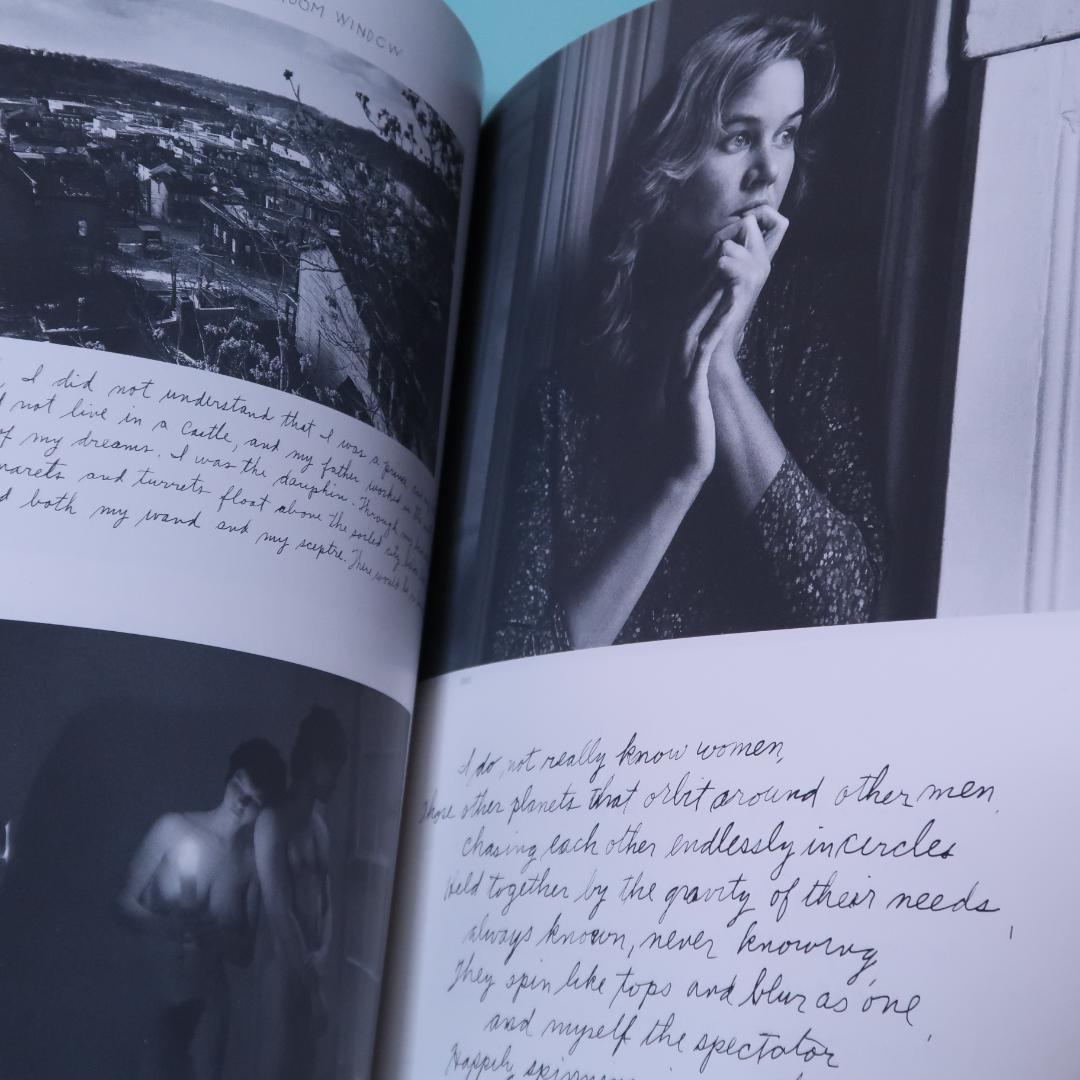 OOM WINDOW
I did not understand that I was a
not live in a castle, and my father worked in the
of my dreams. I was the dauphin. Through my
narets and turrets float above the soiled city below
d both my wand and my sceptre. There would be
I do not really know women,
Those other planets that orbit around other men,
chasing each other endlessly in circles
Held together by the gravity of their needs,
always known, never knowing,
They spin like tops and blur as one,
and myself the spectator
Happily spinning